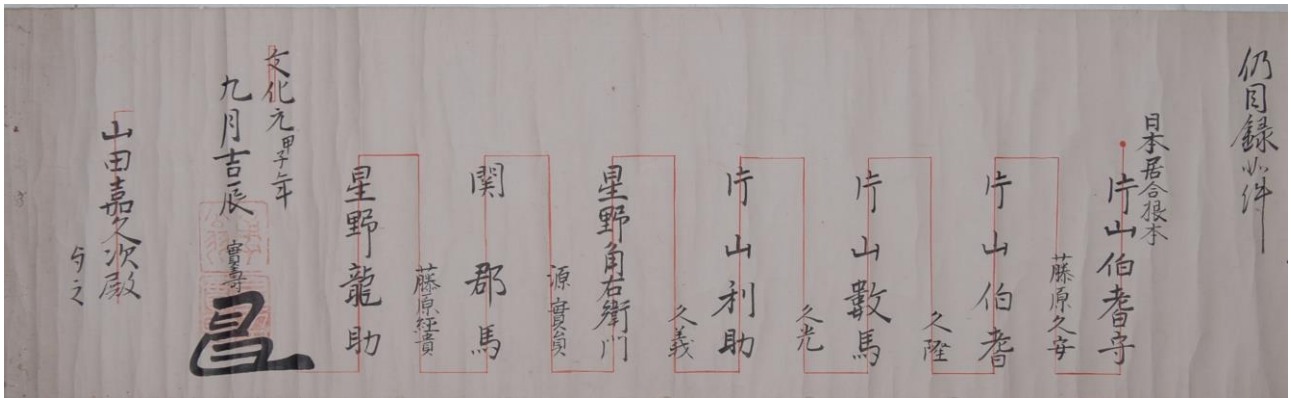 仍目録如件
日本居合根本
片山伯耆守
藤原久安
片山伯耆
久隆
片山數馬
久光
片山利助
久義
星野角右衛門
源實員
関郡馬
藤原経貴
星野龍助
實壽
文化元甲子年
九月吉辰
山田嘉久次殿
与之